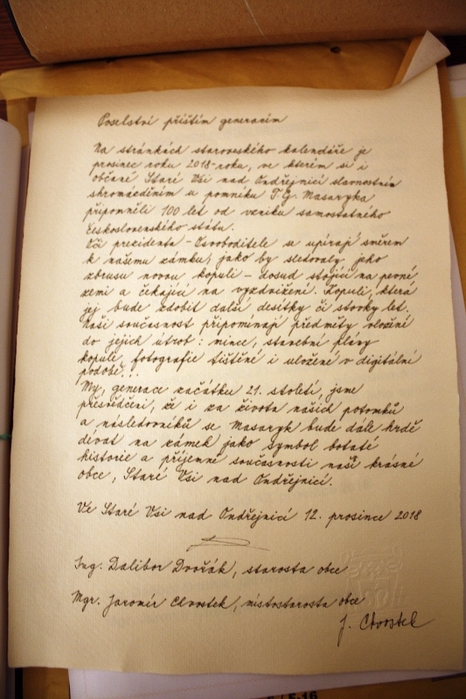 Poselství příštím generacím
Na stránkách staroveského kalendáře je
prosinec roku 2018 - roku, ve kterém si i
občané Staré Vsi nad Ondřejnicí slavnostním
shromážděním u pomníku T.G. Masaryka
připomněli 100 let od vzniku samostatného
Československého státu.
Oči prezidenta - Osvoboditele se upírají směrem
k našemu zámku, jako by sledovaly jeho
zbrusu novou kopuli - dosud stojící na pevné
zemi a čekající na vyzdvižení. Kopuli, která
jej bude zdobit další desítky či stovky let.
Naši současnost připomínají předměty vložené
do jejich útrob: mince, stavební plány
kopule, fotografie tištěné i uložené v digitální
podobě...
My, generace začátku 21. století, jsme
přesvědčeni, že i za života našich potomků
a následovníků se Masaryk bude dále hrdě
dívat na zámek jako symbol bohaté
historie a příjemné současnosti naší krásné
obce, Staré Vsi nad Ondřejnicí.
Ve Staré Vsi nad Ondřejnicí 12. prosince 2018
Ing. Dalibor Dvořák, starosta obce
Mgr. Jaromír Chvostek, místostarosta obce
J. Chvostek